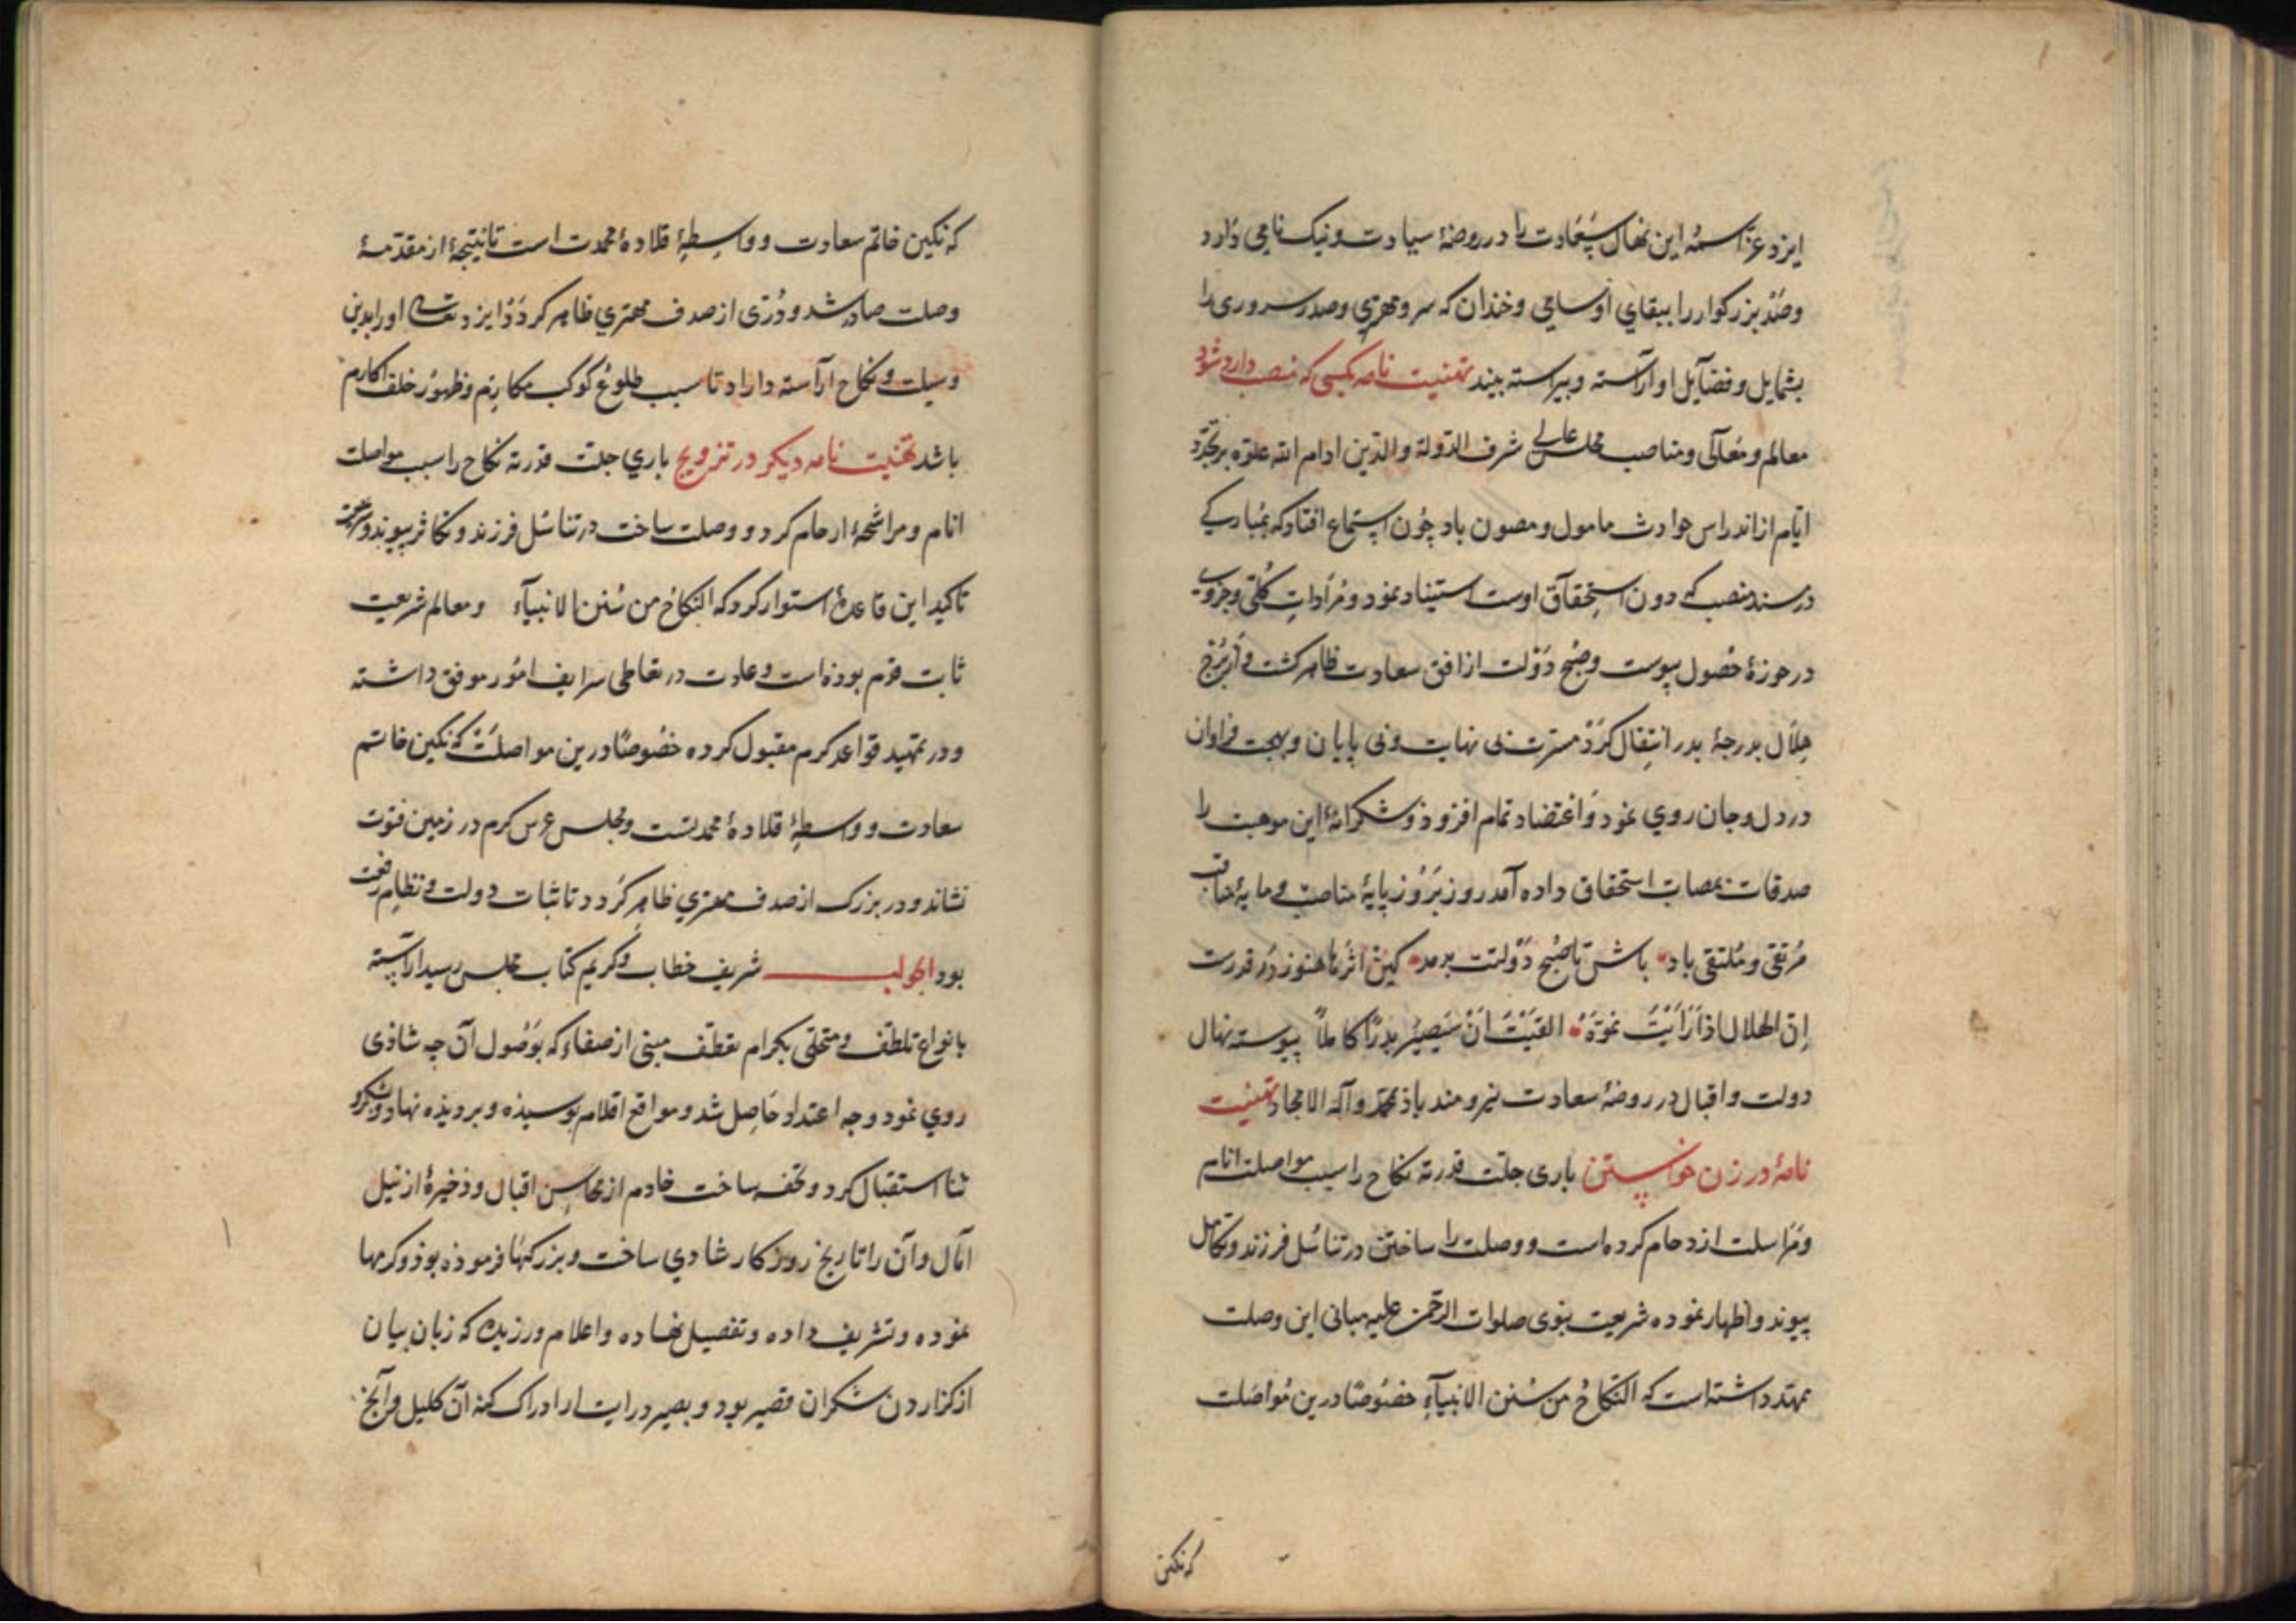 ایزد عزّ اسمه این نهال سعادت را در روضهٔ سیادت و نیک نامی دارد
وصدر بزرکوار را ببقای او سامی وخندان که سر ومهتری وصدر سروری را
بشمایل و فضایل او آراسته و پیراسته بیند تهنیت نامه بکسی که منصب دار شود
معالم ومعالی ومناصب مجلس عالی شرف الدولة والدین ادام الله علوه بر تجدد
ایام از اندراس حوادث مامول ومصون باد چون استماع افتاد که بمبارکی
در مسند منصب که دون استحقاق اوست استیناد نمود و مرادات کلی وجزوی
در حوزهٔ حصول پیوست وصبح دولت از افق سعادت ظاهر کشت و از برج
هلال بدرجهٔ بدر انتقال کرد مسرت بی نهایت وبی پایان وبهجت فراوان
در دل وجان روی نمود واعتضاد تمام افزود وشکرانهٔ این موهبت را
صدقات بمصاب استحقاق داده آمد روز بروز پایهٔ مناصب و مایهٔ مناقب
مرتقی و ملتقی باد باش تا صبح دولتت بدمد کین اثرها هنوز در قدرت
إن الهلال اذا رأیت نموّه القیت ان سیصیر بدرًا کاملًا پیوسته نهال
دولت واقبال در روضهٔ سعادت نیرومند باذ بمحمد وآله الامجاد تهنیت
نامهٔ در زن خواستن باری جلت قدرته نکاح را سبب مواصلت انام
ومراسلت ازدحام کرده است ووصلت را ساختن در تناسل فرزند و تکامل
پیوند واظهار نموده شریعت نبوی صلوات الرحمن علیه مبانی این وصلت
ممهد داشته است که النکاح من سنن الانبیآءِ خصوصًا درین مواصلت
که نکین
که نکین خاتم سعادت و واسطهٔ قلادهٔ محمدت است تا نتیجهٔ از مقدمهٔ
وصلت صادر شد و دُرّی از صدف مهتری ظاهر کردد ایزد تعالی او را بدین
وسیلت ونکاح آراسته داراد تا سبب طلوع کوکب مکارم وظهور خلف اکارم
باشد تهنیت نامه دیکر در تزویج باری جلت قدرته نکاح را سبب مواصلت
انام ومراشحهٔ ارحام کرد و وصلت ساخت در تناسل فرزند وتکاثر پیوند وشریعت
تاکید این قاعدهٔ استوار کرد که النکاح من سنن الانبیآء ومعالم شریعت
ثابت قدم بوده است وعادت در تعاطی شرایف امور موفق داشته
ودر تمهید قواعد کرم مقبول کرده خصوصًا درین مواصلت که نکین خاتم
سعادت و واسطهٔ قلادهٔ محمدتست ومجلس عرس کرم در زمین فتوت
نشاند ودر بزرک از صدف مهتری ظاهر کردد تا ثبات دولت ونظام رفعت
بود الجواب شریف خطاب وکریم کتاب مجلس رسید آراسته
بانواع تلطف ومتحلی بکرام تعطف مبنی از صفاء که بوصول آن چه شاذی
روی نمود وچه اعتداد حاصل شد ومواقع اقلام بوسیذه وبر دیذه نهاد وشکر و
ثنا استقبال کرد وتحفه ساخت خادم از محاسن اقبال وذخیرهٔ از نیل
آمال وآن را تاریخ روزکار شادی ساخت وبزرکیها فرموذه بوذ وکرمها
نموده وتشریف داده وتفصیل نهاده واعلام ورزیده که زبان بیان
از کزاردن شکر آن قصیر بود وبصیر درایت از ادراک کنه آن کلیل وآنچ